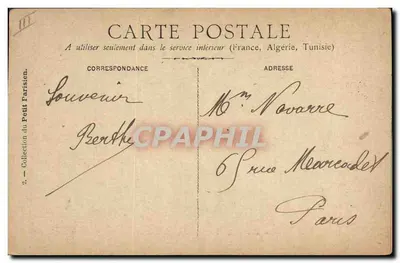 III
CARTE POSTALE
A utiliser seulement dans le service intérieur (France, Algérie, Tunisie)
CORRESPONDANCE
ADRESSE
Souvenir
Berthe
Mme Navarre
65 rue Marcadet
Paris
2. — Collection du Petit Parisien.
CPAPHIL